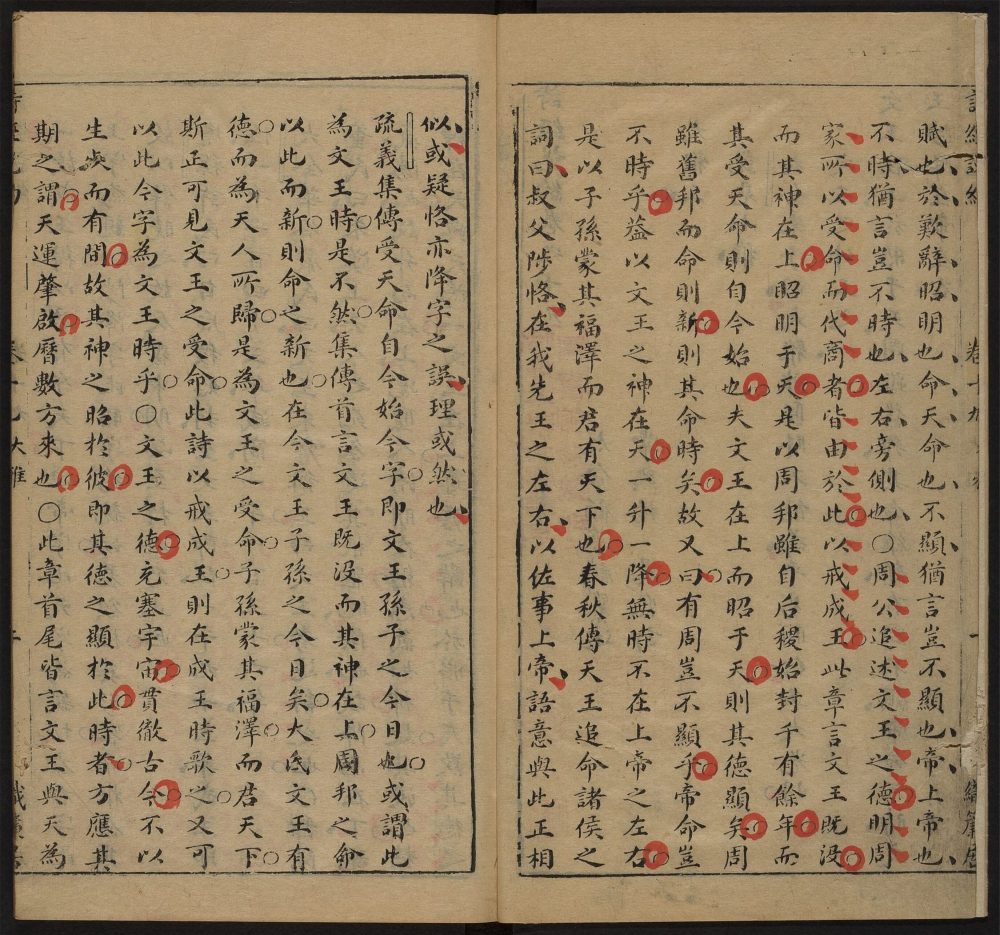 賦也於歎辭昭明也命天命也不顯猶言豈不顯也帝上帝也
不時猶言豈不時也左右旁側也〇周公追述文王之德明周
家所以受命而代商者皆由於此以戒成王此章言文王既沒
而其神在上昭明于天是以周邦雖自后稷始封千有餘年而
其受天命則自今始也夫文王在上而昭于天則其德顯矣周
雖舊邦而命則新則其命時矣故又曰有周豈不顯乎帝命豈
不時乎葢以文王之神在天一升一降無時不在上帝之左右
是以子孫蒙其福澤而君有天下也春秋傳天王追命諸侯之
詞曰叔父陟恪在我先王之左右以佐事上帝語意與此正相
似或疑恪亦降字之誤理或然也
疏義集傳受天命自今始今字即文王孫子之今日也或謂此
為文王時是不然集傳首言文王既沒而其神在上周邦之命
以此而新則命之新也在今文王子孫之今日矣大氐文王有
德而為天人所歸是為文王之受命子孫蒙其福澤而君天下
斯正可見文王之受命此詩以戒成王則在成王時歌之又可
以此今字為文王時乎〇文王之德充塞宇宙貫徹古今不以
生歿而有間故其神之昭於彼即其德之顯於此時者方應其
期之謂天運肇啟曆數方來也〇此章首尾皆言文王與天為
卷十九 大雅